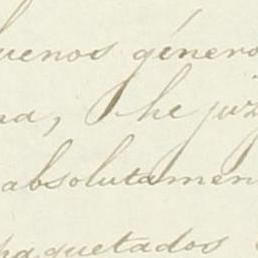 buenos género
na, he juz
absolutamen
paquetados